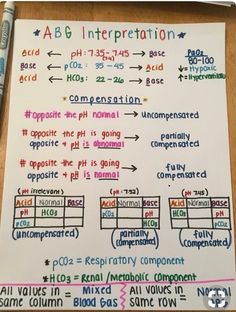 * ABG Interpretation *
Acid ← pH: 7.35 - 7.45 → Base
Base ← pCO₂: 35 - 45 → Acid
Acid ← HCO₃: 22 - 26 → Base
PaO₂
80-100
↓ = Hypoxic
↑ = Hyperventilation
* Compensation *
# opposite the pH normal → Uncompensated
# opposite the pH is going
opposite + pH is abnormal → partially
compensated
# opposite the pH is going
opposite + pH is normal → fully
compensated
(pH irrelevant)
Acid Normal Base
pH HCO₃
pCO₂
(uncompensated)
(pH = 7.52)
Acid Normal Base
pCO₂ pH
HCO₃
(partially
compensated)
(pH 7.45)
Acid Normal Base
HCO₃ pH
pCO₂
(fully
compensated)
* pCO₂ = Respiratory component
* HCO₃ = Renal/Metabolic component
All values in
same column = Mixed
Blood Gas
All values in
same row = Normal